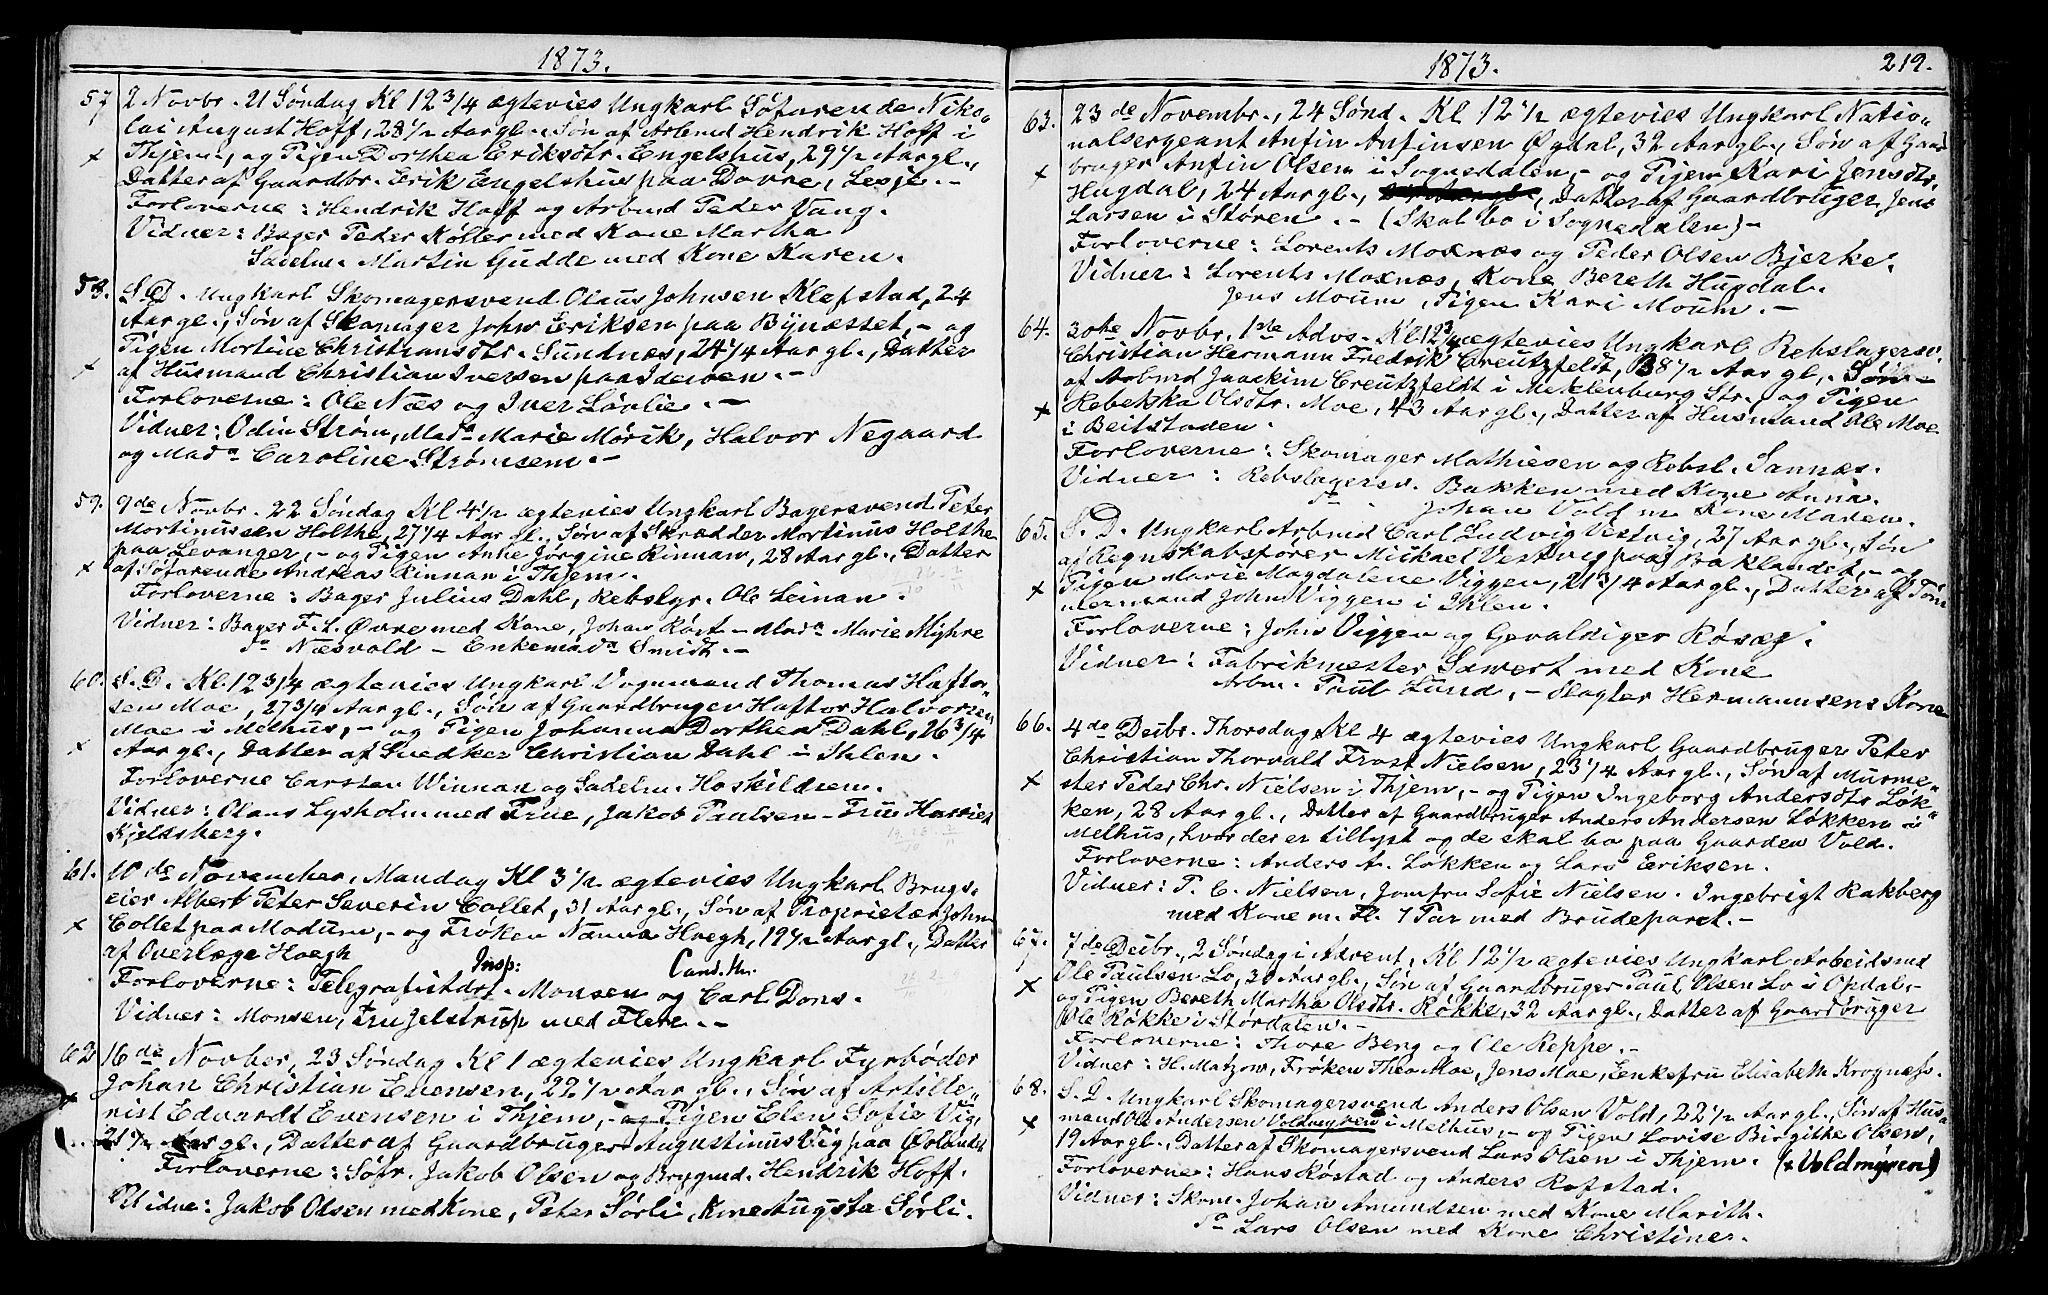 1873.
57 2 Novbr. 21 Søndag Kl 12 3/4 ægtevies Ungkarl Søfarende Niko-
lai August Hoff, 28 1/2 Aar gl., Søn af Arbmd Hendrik Hoff i
x Thjem, og Pigen Dorthea Eriksdtr. Engelshus, 29 1/2 Aar gl.,
Datter af Gaardbr. Erik Engelshus paa Dovre, Lesje. -
Forloverne: Hendrik Hoff og Arbmd Peder Vang.
Vidner: Bager Peder Køller med Kone Martha
Sadelm. Martin Gudde med Kone Karen.
58. S. D. Ungkarl Skomagersvend Olaus Johnsen Klefstad, 24
Aar gl., Søn af Skomager John Eriksen paa Bynæsset, - og
Pigen Mortine Christiansdtr. Sundnæs, 24 1/4 Aar gl., Datter
x af Husmand Christian Iversen paa Inderøen. -
Forloverne: Ole Næs og Iver Løvlie. -
Vidner: Odin Strøm, Mada Marie Mørik, Halvor Negaard
og Mada Caroline Strømsem. -
59. 9de Novbr. 22 Søndag Kl 4 1/2 ægtevies Ungkarl Bagersvend Peter
Mortinussen Holthe, 27 1/4 Aar gl., Søn af Skrædder Mortinus Holthe
paa Levanger, - og Pigen Anne Jørgine Rinnan, 28 Aar gl., Datter
x af Søfarende Andreas Rinnan i Thjem.
Forloverne: Bager Julius Dahl, Rebslgr. Ole Leinan.
Vidner: Bager F. L. Øvre med Kone, Johan Røst - Mada Marie Myhre
Do Næsvold - Enkemada Smidt. -
60. S. D. Kl 12 3/4 ægtevies Ungkarl Vognmand Thomas Haftor-
sen Moe, 27 3/4 Aar gl., Søn af Gaardbruger Haftor Halvorsen
Moe i Melhus, - og Pigen Johanna Dorthea Dahl, 26 3/4
x Aar gl., Datter af Snedker Christian Dahl i Ihlen.
Forloverne Carsten Winnan og Sadelm. Hoskildsen.
Vidner: Olaus Lysholm med Frue, Jakob Paulsen - Frue Harriet
Kjeldsberg.
61. 10de November, Mandag Kl 3 1/2 ægtevies Ungkarl Brugs-
eier Albert Peter Severin Collet, 31 Aar gl., Søn af Proprietær John
x Collet paa Modum, - og Frøken Nanna Hoegh, 19 1/2 Aar gl., Datter
af Overlæge Hoegh
Insp: Cand. Thr.
Forloverne: Telegrafistdrs. Monsen og Carl Dons.
Vidner: Monsen, Fru Jelstrup med Flere. -
62 16de Novber, 23 Søndag Kl 1 ægtevies Ungkarl Fyrbøder
Johan Christian Evensen, 22 1/2 Aar gl., Søn af Artille-
x rist Edvardt Evensen i Thjem, - og Pigen Elen Sofie Vig,
21 1/2 Aar gl., Datter af Gaardbruger Augustinus Vig paa
Forloverne: Søfr. Jakob Olsen og Brygmd. Hendrik Hoff.
Vidne: Jakob Olsen med Kone, Peter Sørli, Kone Augusta Sørli.
1873. 219.
63. 23de Novembr., 24 Sønd. Kl 12 1/2 ægtevies Ungkarl Natio-
nalsergeant Anfin Anfinsen Øydal, 32 Aar gl., Søn af Gaard
x bruger Anfin Olsen i Sognedalen, - og Pigen Kari Jensdtr.
Hugdal, 24 Aar gl., Datter af Gaardbruger Jens
Larsen i Støren. - (Skal bo i Sognedalen) -
Forloverne: Lorents Moxnæs og Peder Olsen Bjerke.
Vidner: Lorents Moxnæs, Kone Bereth Hugdal.
Jens Moum, Pigen Kari Moum. -
64. 30te Novbr. 1ste Adv. Kl 12 3/4 ægtevies Ungkarl Rebslagersv.
Christian Hermann Fredrik Creutzfeldt, 38 1/2 Aar gl., Søn
af Arbmd Joackim Creutzfeldt i Meklenburg Str., og Pigen
x Rebekka Olsdtr. Moe, 43 Aar gl., Datter af Husmand Ole Moe
i Beitstaden.
Forloverne: Skomager Mathiesen og Rebsl. Sannæs.
Vidner: Rebslagersv. Bakken med Kone Anna.
Do Johan Vold m Kone Maren.
65. S. D. Ungkarl Arbmd Carl Ludvig Vestvig, 27 Aar gl., Søn
af Regnskabsfører Mickael Vestvig paa Baklandet, - og
x Pigen Marie Magdalene Viggen, 21 3/4 Aar gl., Datter af Tøm
mermand John Viggen i Ihlen.
Forloverne: John Viggen og Gevaldiger Røsæg.
Vidner: Fabrikmester Sawert med Kone
Arbm. Paul Lund, - Slagter Hermannsens Kone
66. 4de Decbr. Thorsdag Kl 4 ægtevies Ungkarl Gaardbruger Peter
Christian Thorvald Frost Nielsen, 23 1/4 Aar gl., Søn af Murme-
x ster Peder Chr. Nielsen i Thjem, - og Pigen Ingeborg Andersdtr Løk-
ken, 28 Aar gl., Datter af Gaardbruger Anders Andersen Løkken i
Melhus, hvor der er tillyst og de skal bo paa Gaarden Vold.
Forloverne: Anders A. Løkken og Lars Eriksen.
Vidner: P. C. Nielsen, Jomfru Sofie Nielsen. Ingebrigt Rakberg
med Kone m. Fl. 7 Par med Brudeparet. -
67. 7de Decbr., 2 Søndag i Advent, Kl 12 1/2 ægtevies Ungkarl Arbeidsmd
x Ole Paulsen Lo, 30 Aar gl., Søn af Gaardbruger Paul Olsen Lo i Opdal, -
og Pigen Bereth Martha Olsdtr. Røkke, 32 Aar gl., Datter af Gaardbruger
Ole Røkke i Størdalen. -
Forloverne: Thore Beng og Ole Reppe. -
Vidner: H. Matzow, Frøken Thea Moe, Jens Moe, Enkefru Elisabeth Krogness.
68. S. D. Ungkarl Skomagersvend Anders Olsen Vold, 22 1/2 Aar gl., Søn af Hus
x mand Ole Andersen Voldmyren i Melhus, - og Pigen Lovise Birgitte Olsen,
19 Aar gl., Datter af Skomagersvend Lars Olsen i Thjem. (x Voldmyren)
Forloverne: Hans Røstad og Anders Rofstad.
Vidner: Skom. Johan Amundsen med Kone Marith.
Do Lars Olsen med Kone Christine.